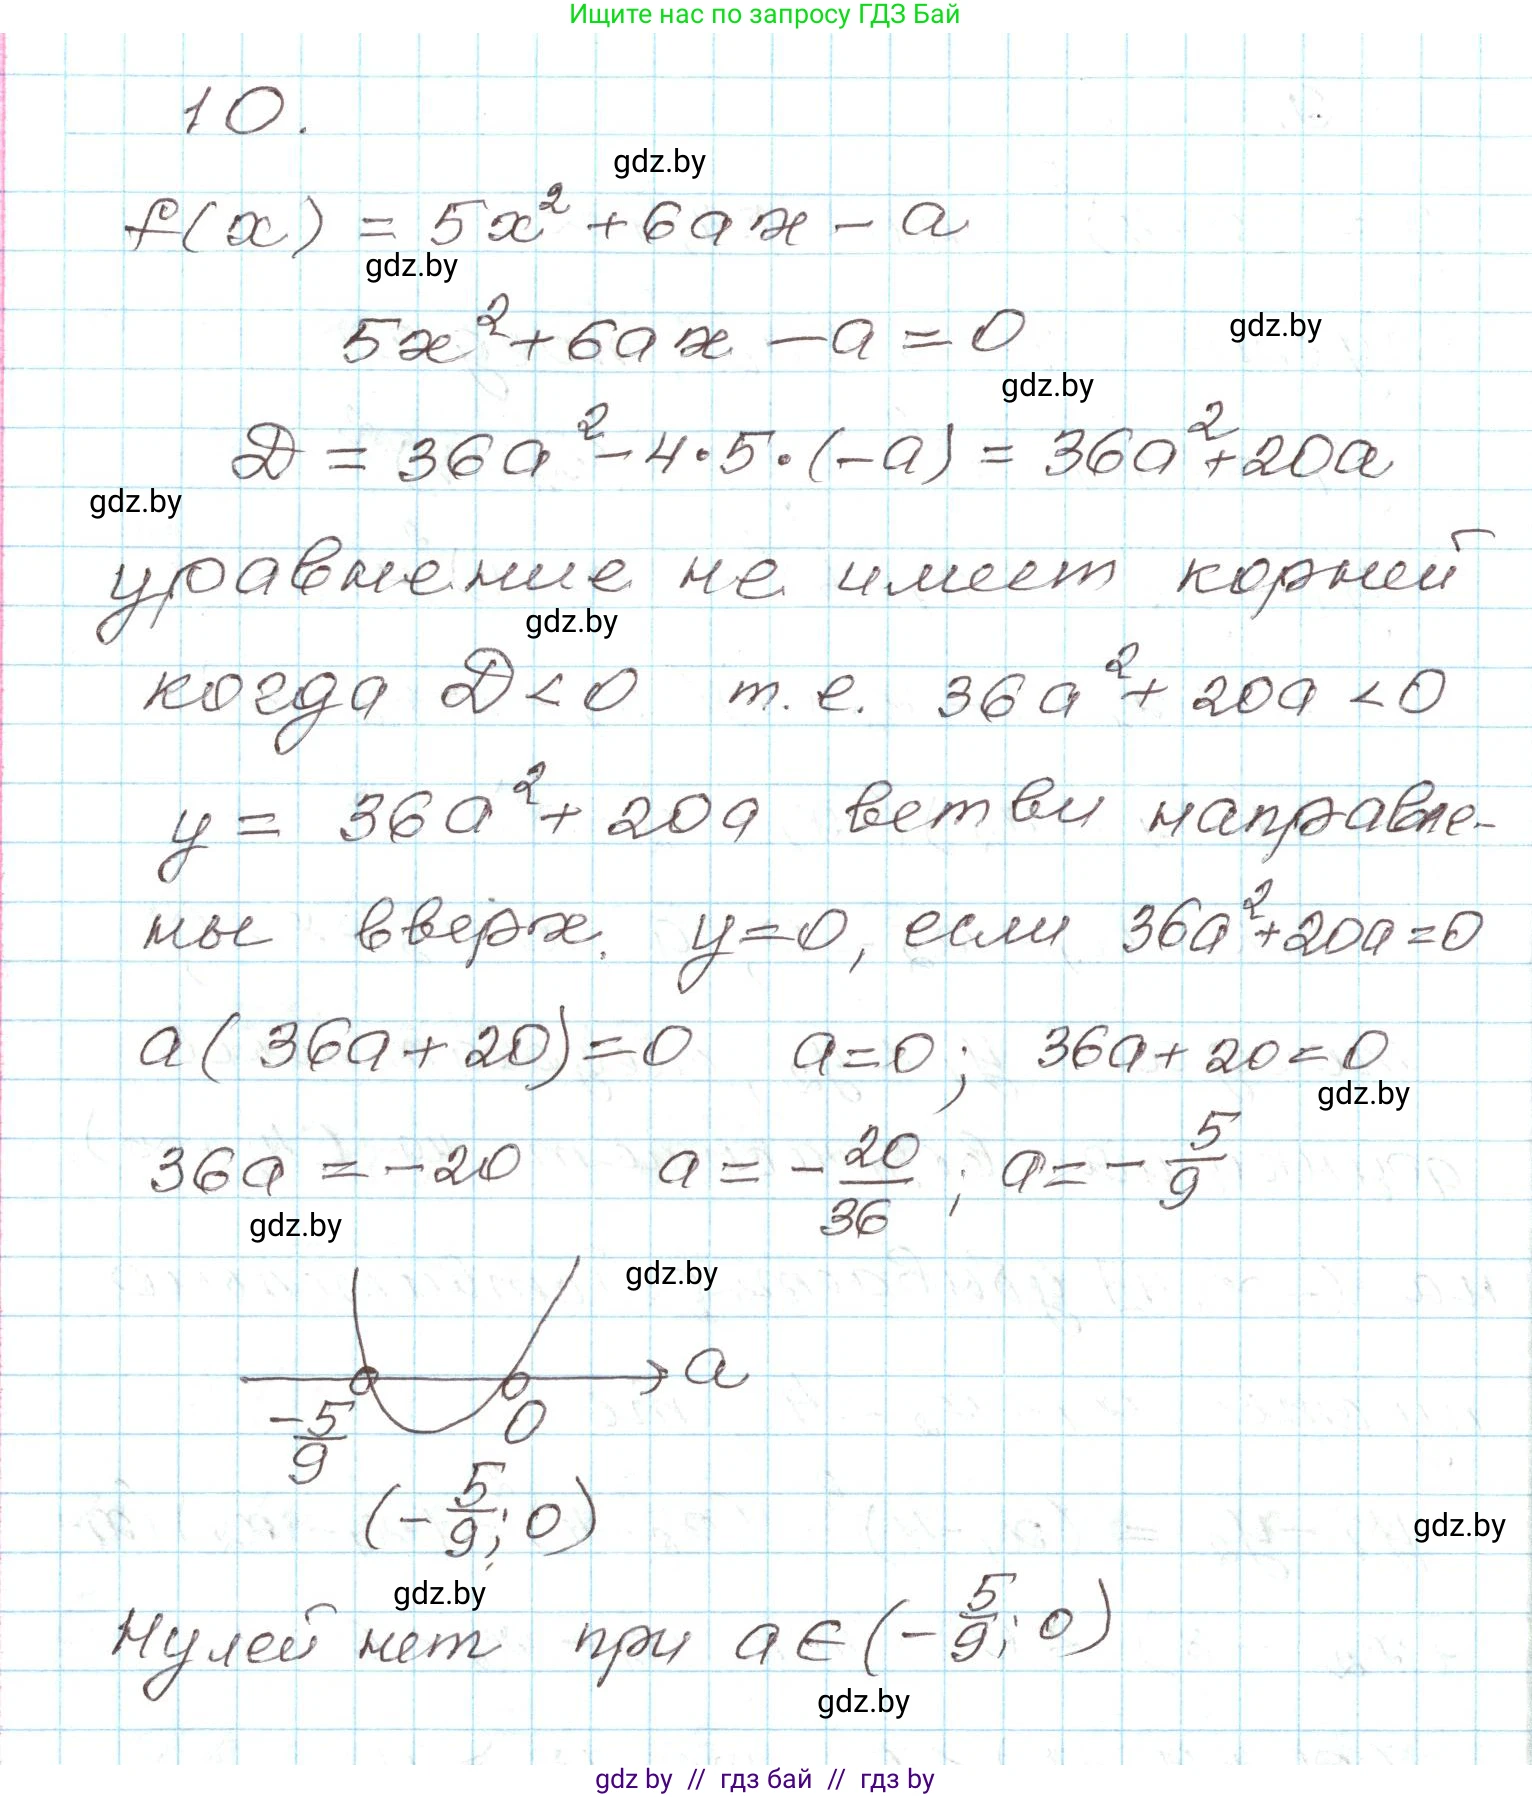 Ищите нас по запросу ГДЗ Бай
10.
gdz.by
f(x) = 5x² + 6ax - a
gdz.by
5x² + 6ax - a = 0
gdz.by
gdz.by
D = 36a² - 4·5·(-a) = 36a² + 20a
gdz.by
уравнение не имеет корней
gdz.by
когда D < 0 т.е. 36a² + 20a < 0
y = 36a² + 20a ветви направле-
ны вверх. y = 0, если 36a² + 20a = 0
a(36a + 20) = 0 a = 0; 36a + 20 = 0
gdz.by
36a = -20 a = -20/36; a = -5/9
gdz.by
gdz.by
a
-5/9 0
(-5/9; 0)
gdz.by
gdz.by
Нулей нет при a ∈ (-5/9; 0)
gdz.by
gdz by // гдз бай // гдз by